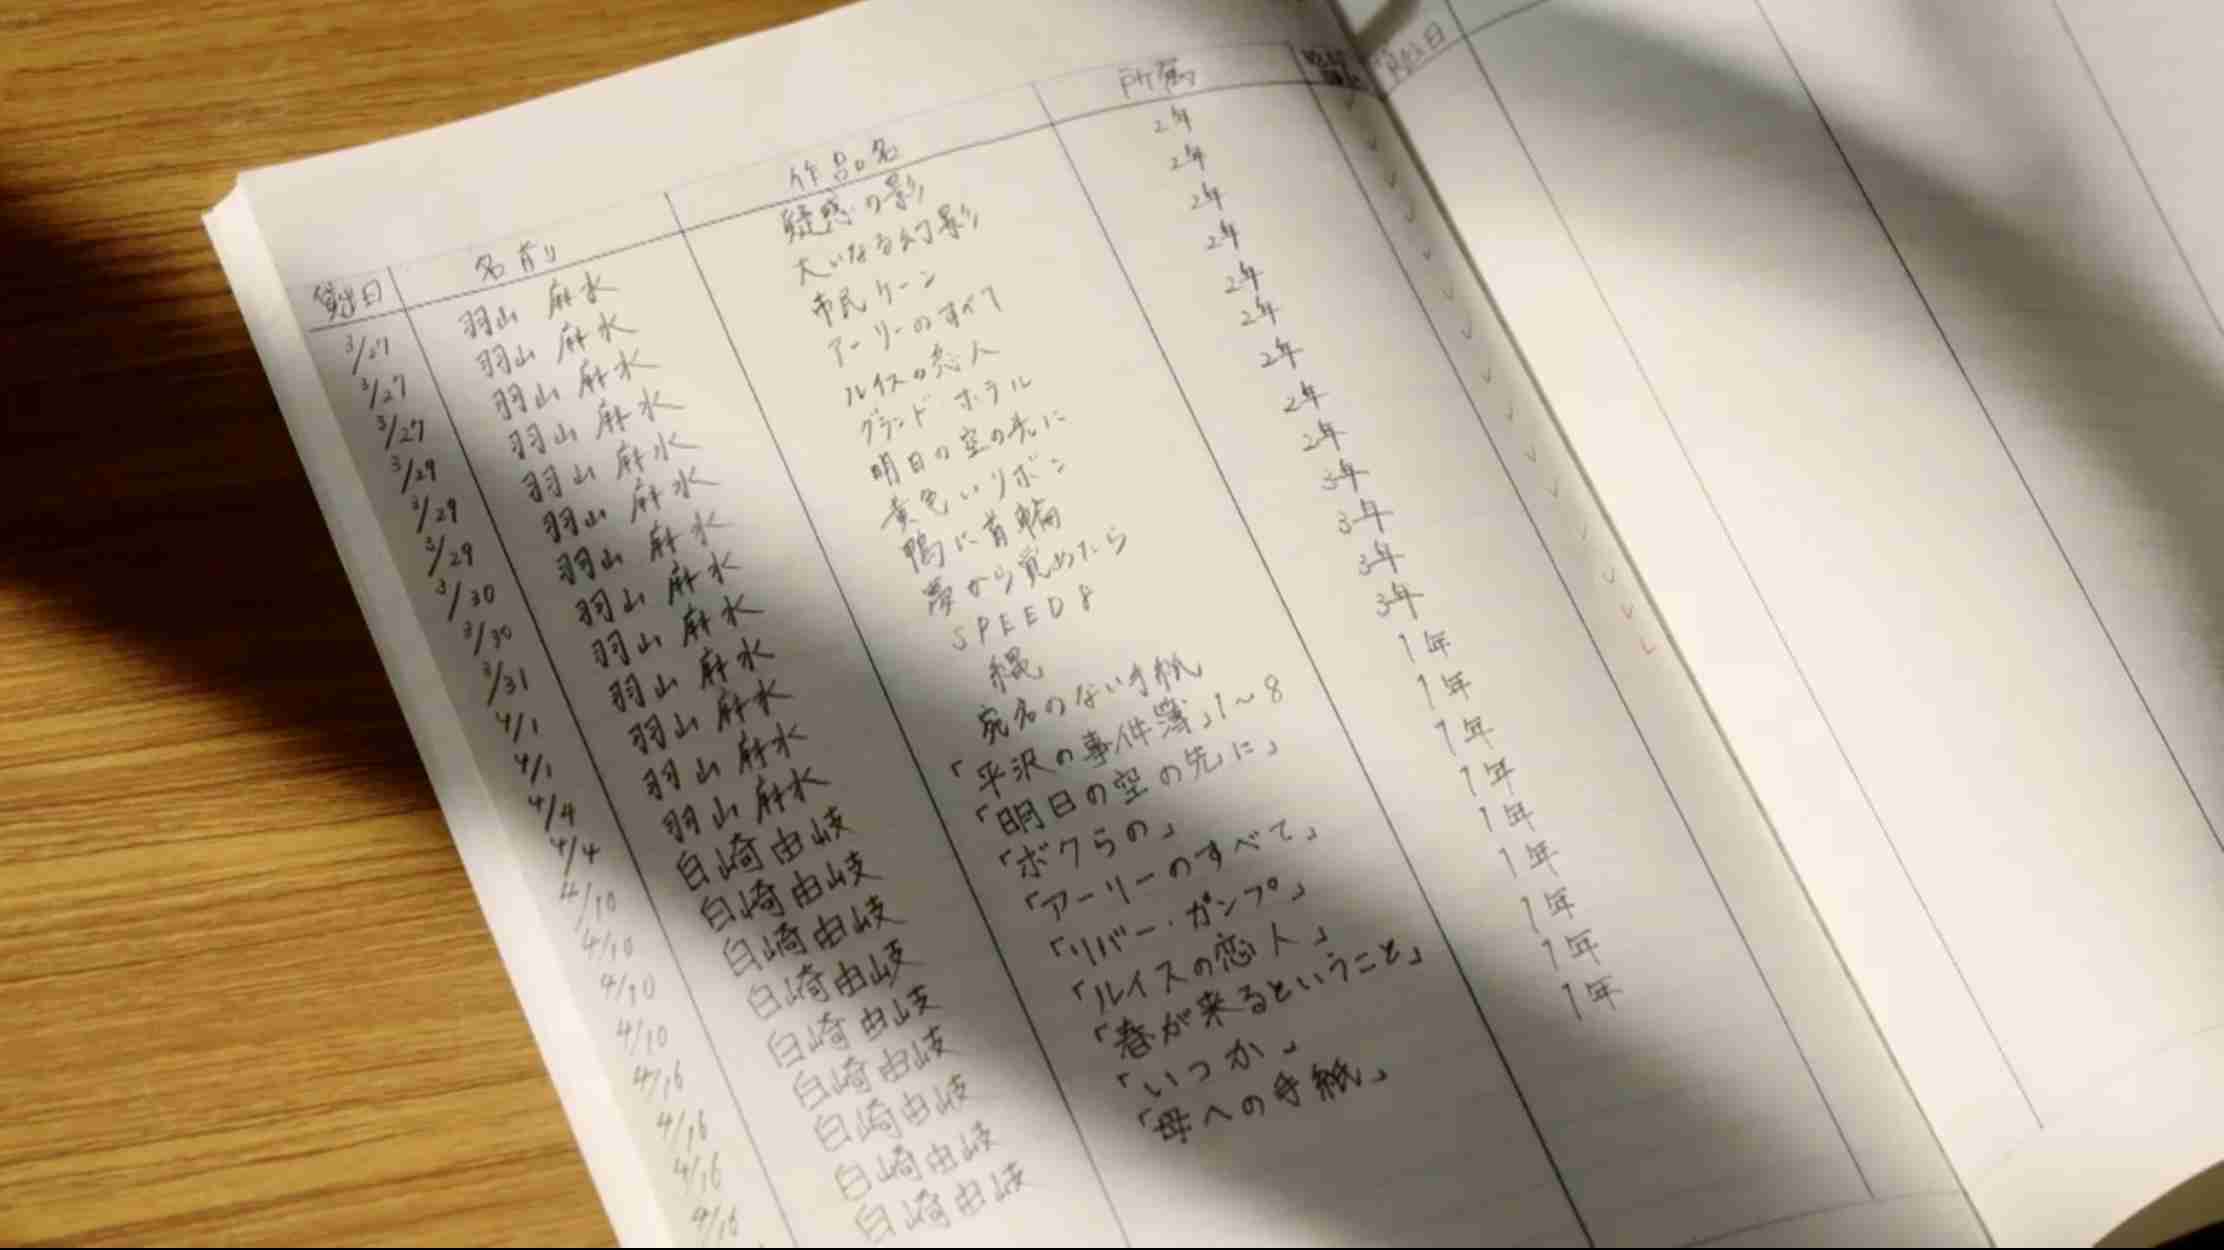 貸出日 名前 作品名 所属
3/27 羽山 麻水 疑惑の影 2年
3/27 羽山 麻水 大いなる幻影 2年
3/27 羽山 麻水 市民ケーン 2年
3/29 羽山 麻水 アーリーのすべて 2年
3/29 羽山 麻水 ルイスの恋人 2年
3/29 羽山 麻水 グランド ホテル 2年
3/30 羽山 麻水 明日の空の先に 2年
3/30 羽山 麻水 黄色いリボン 2年
3/31 羽山 麻水 鴨に首輪 2年
4/1 羽山 麻水 夢から覚めたら 3年
4/1 羽山 麻水 SPEED 8 3年
4/4 羽山 麻水 縄 3年
4/4 羽山 麻水 宛名のない手紙 3年
4/10 白崎由岐 「平沢の事件簿」1〜8 1年
4/10 白崎由岐 「明日の空の先に」 1年
4/10 白崎由岐 「ボクらの」 1年
4/10 白崎由岐 「アーリーのすべて」 1年
4/16 白崎由岐 「リバー・ガンプ」 1年
4/16 白崎由岐 「ルイスの恋人」 1年
4/16 白崎由岐 「春が来るということ」 1年
4/16 白崎由岐 「いつか」 1年
白崎由岐 「母への手紙」 1年
貸出日